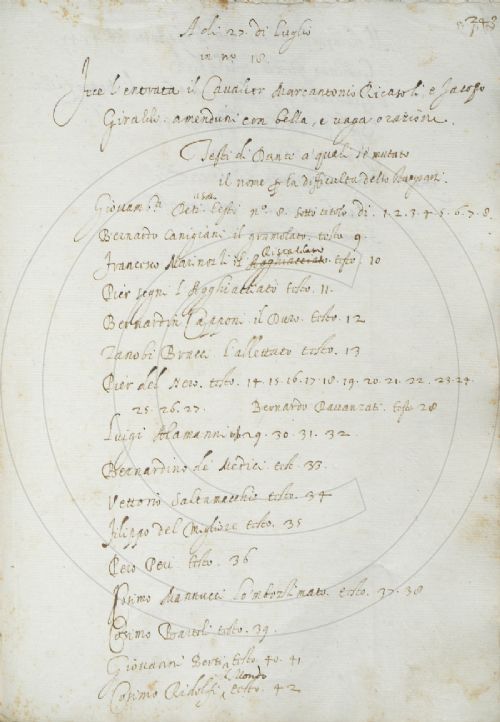 243
A dì 27. di Luglio
in nº 18.
fece l'entrata il Cavalier Marcantonio Ricasoli e Jacopo
Giraldi amenduni con bella, e vaga orazione.
Testi di Dante a quali s'è mutato
il nome e la difficultà dello
Giovam.ta Deti il Sollo testi nº 8. sotto titolo di 1. 2. 3. 4. 5. 6. 7. 8
Bernardo Canigiani il gramolato. testo 9.
Francesco Marinozzi il Riscaldato testo 10
Pier Segni l'Agghiacciato testo. 11.
Bernardin Capponi il Duro. testo. 12
Zanobi Bracci l'allettato testo. 13
Pier del Nero. testo. 14. 15. 16. 17. 18. 19. 20. 21. 22. 23. 24.
25. 26. 27. Bernardo Davanzati. testo 28
Luigi Alamanni 29. 30. 31. 32.
Bernardino de Medici test. 33.
Vettorio Saltamacchie testo. 34
Filippo del Migliore testo. 35
testo. 36
Cosimo Mannucci testo. 37. 38
Cosimo Bartoli testo. 39.
Giovanni Berti testo. 40. 41
Cosimo Ridolfi il Mondo testo. 42